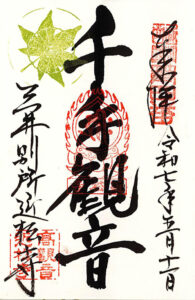 奉拝
令和七年五月十一日
千手観音
三井別所近松寺
高観音